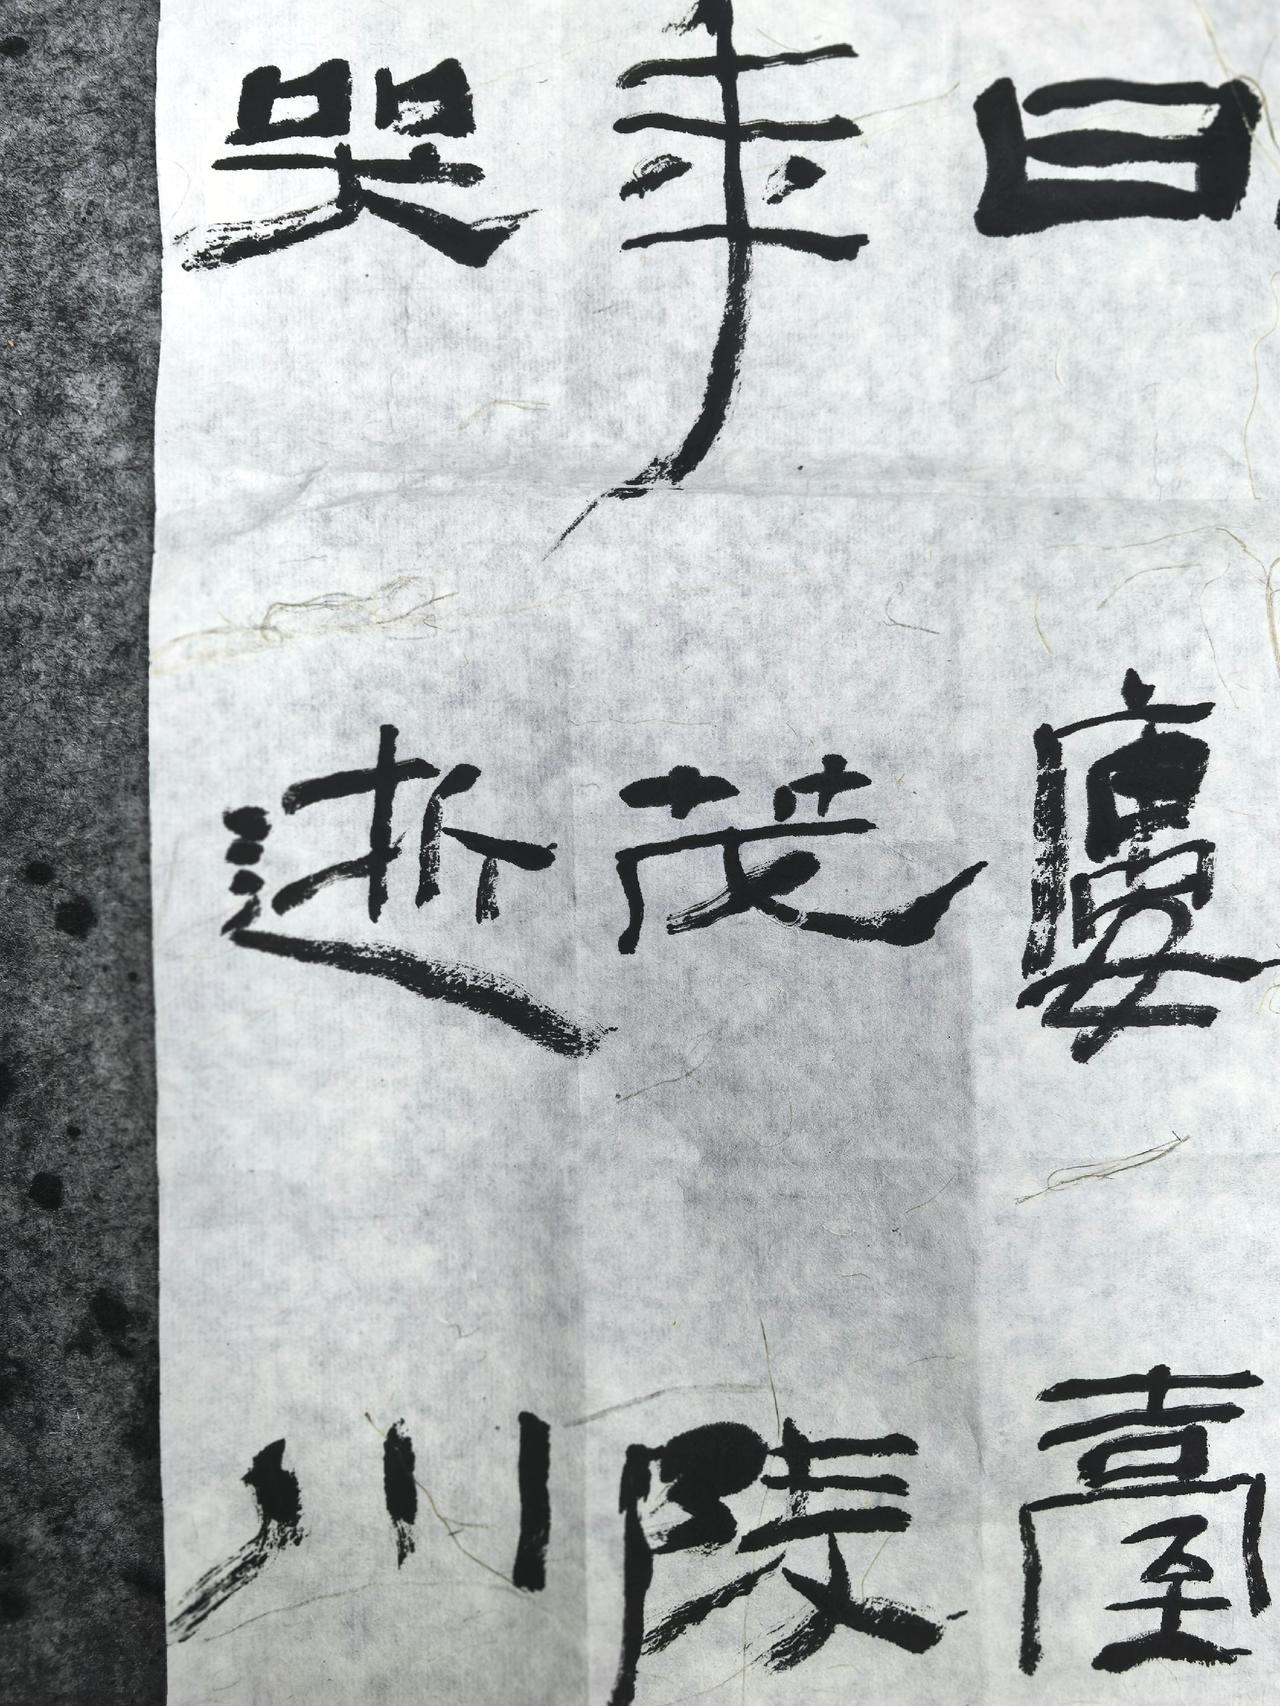 日廔臺
年茂陵
哭逝川